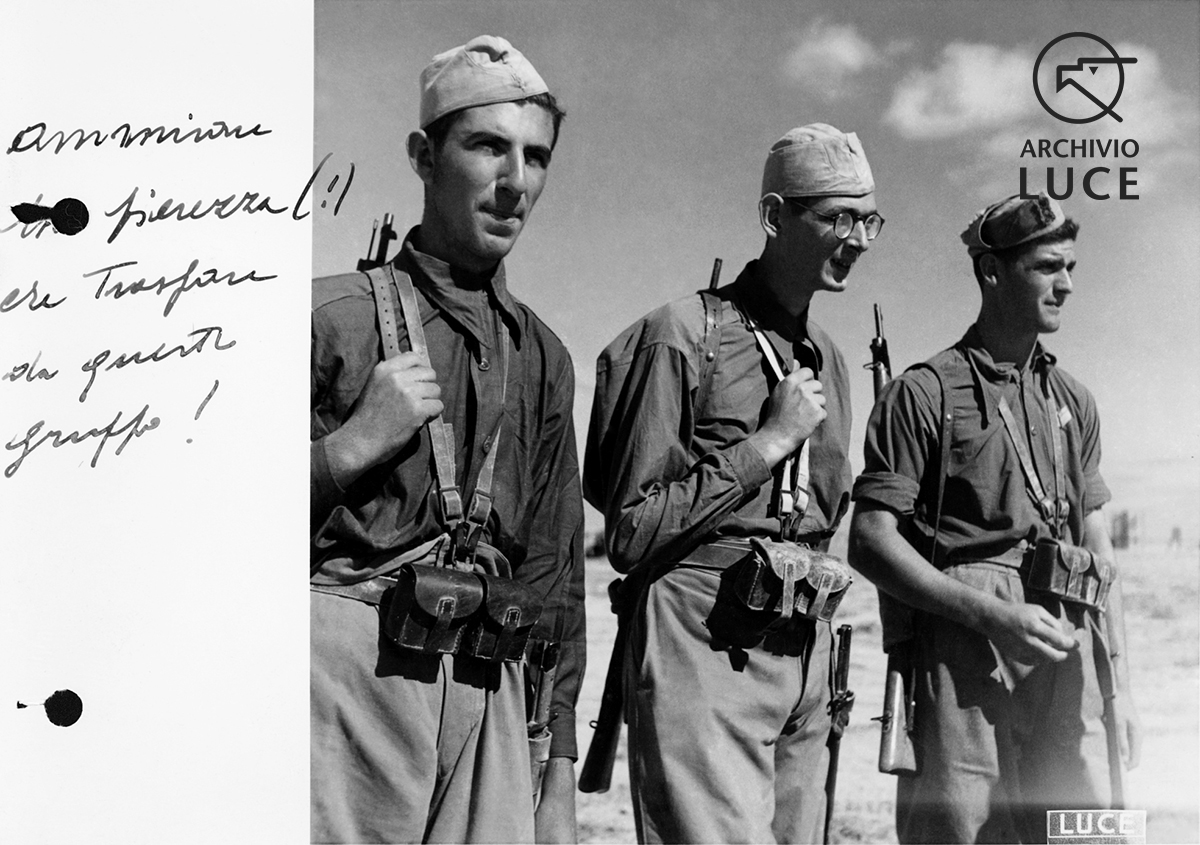 ammirare
fierezza (!)
che Traspare
da questo
gruppo!
ARCHIVIO
LUCE
LUCE